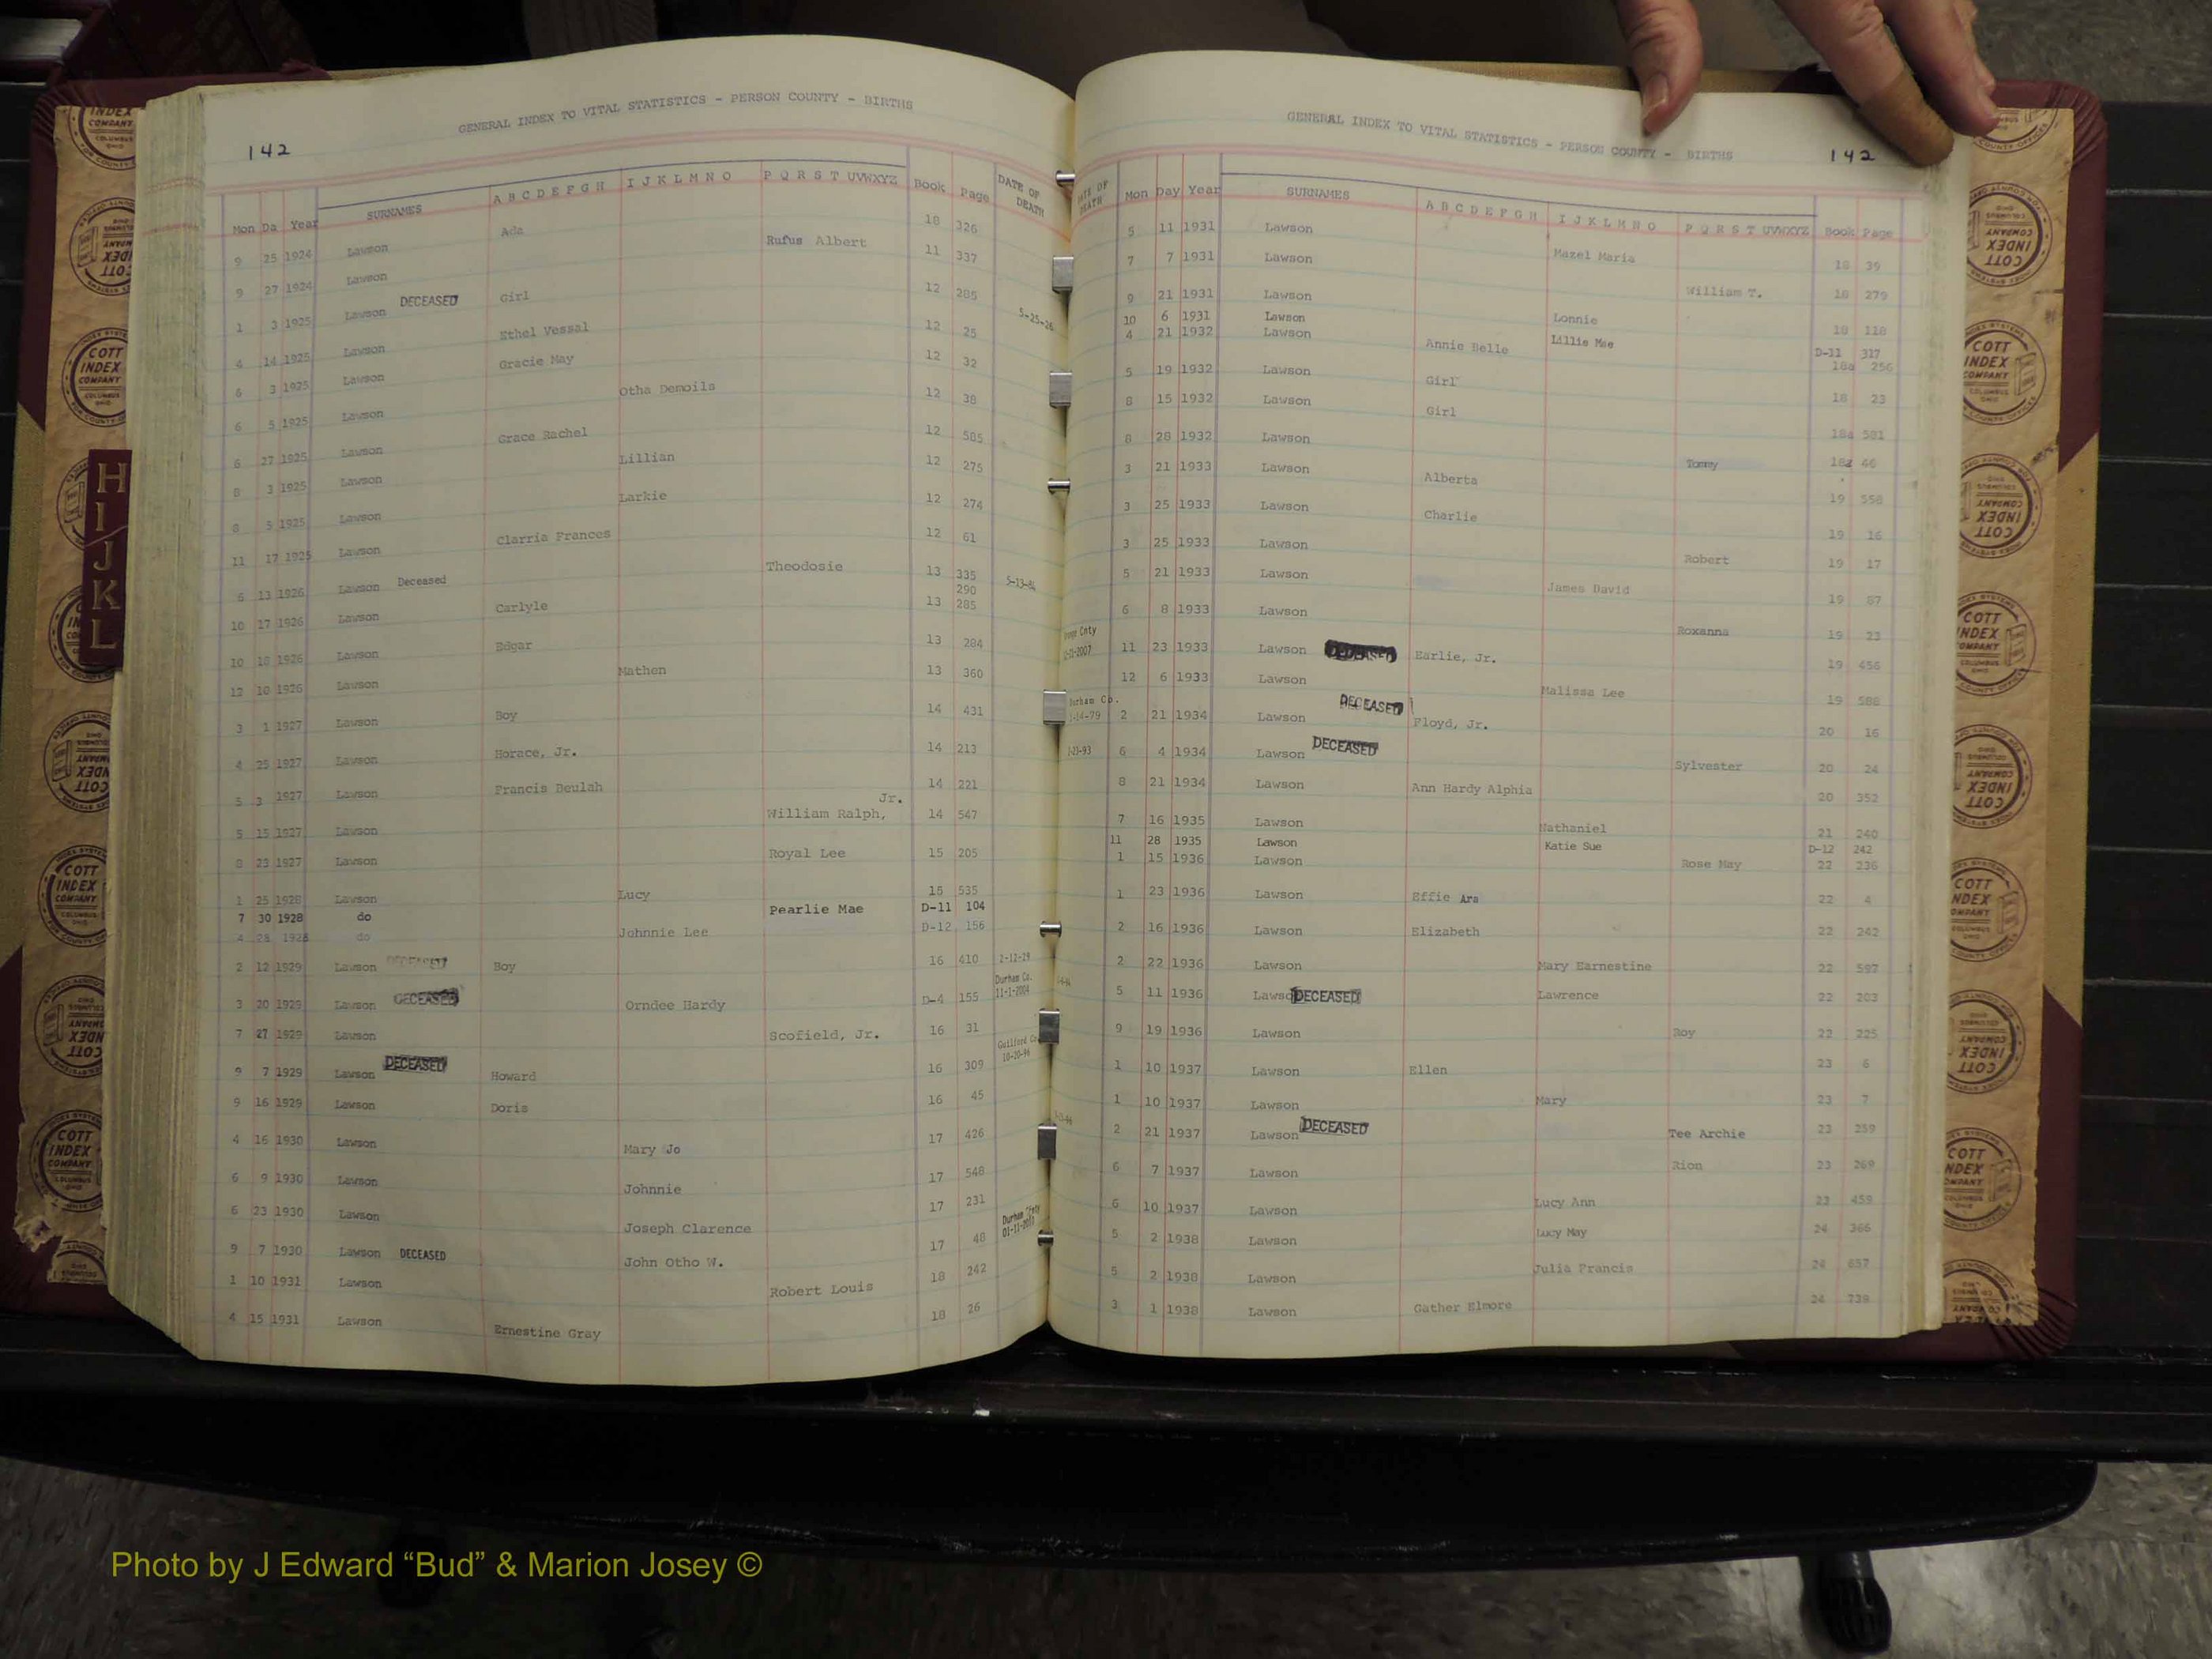 GENERAL INDEX TO VITAL STATISTICS - PERSON COUNTY - BIRTHS
142
Mon Da Year SURNAMES A B C D E F G H I J K L M N O P Q R S T UVWXYZ Book Page DATE OF DEATH
9 25 1924 Lawson Ada 18 326
9 27 1924 Lawson Rufus Albert 11 337
1 3 1925 Lawson DECEASED Girl 12 285 5-25-26
4 14 1925 Lawson Ethel Vessal 12 25
6 3 1925 Lawson Gracie May 12 32
6 5 1925 Lawson Otha Demoils 12 38
6 27 1925 Lawson Grace Rachel 12 585
8 3 1925 Lawson Lillian 12 275
8 5 1925 Lawson Larkie 12 274
11 17 1925 Lawson Clarria Frances 12 61
6 13 1926 Lawson Deceased Theodosie 13 335 5-13-84
290
10 17 1926 Lawson Carlyle 13 285
10 18 1926 Lawson Edgar 13 284
12 10 1926 Lawson Mathen 13 360
3 1 1927 Lawson Boy 14 431
4 25 1927 Lawson Horace, Jr. 14 213
5 3 1927 Lawson Francis Beulah 14 221
5 15 1927 Lawson William Ralph, Jr. 14 547
8 23 1927 Lawson Royal Lee 15 205
1 25 1928 Lawson Lucy 15 535
7 30 1928 do Pearlie Mae D-11 104
4 28 1928 do Johnnie Lee D-12 156
2 12 1929 Lawson DECEASED Boy 16 410 2-12-29
3 20 1929 Lawson DECEASED Orndee Hardy D-4 155 Durham Co. 11-1-2004
7 27 1929 Lawson Scofield, Jr. 16 31
9 7 1929 Lawson DECEASED Howard 16 309 Guilford Co 10-20-96
9 16 1929 Lawson Doris 16 45
4 16 1930 Lawson Mary Jo 17 426
6 9 1930 Lawson Johnnie 17 548
6 23 1930 Lawson Joseph Clarence 17 231
9 7 1930 Lawson DECEASED John Otho W. 17 48 Durham Cnty
1 10 1931 Lawson Robert Louis 18 242
4 15 1931 Lawson Ernestine Gray 18 26
GENERAL INDEX TO VITAL STATISTICS - PERSON COUNTY - BIRTHS
142
DATE OF DEATH Mon Day Year SURNAMES A B C D E F G H I J K L M N O P Q R S T UVWXYZ Book Page
5 11 1931 Lawson Mazel Maria 18 39
7 7 1931 Lawson William T. 18 279
9 21 1931 Lawson Lonnie 18 118
10 6 1931 Lawson Lillie Mae D-11 317
4 21 1932 Lawson Annie Belle 18a 256
5 19 1932 Lawson Girl 18 23
8 15 1932 Lawson Girl 18a 581
8 28 1932 Lawson Tommy 46
3 21 1933 Lawson Alberta 19 558
3 25 1933 Lawson Charlie 19 16
3 25 1933 Lawson Robert 19 17
5 21 1933 Lawson James David 19 87
6 8 1933 Lawson Roxanna 19 23
Cnty 11 23 1933 Lawson DECEASED Earlie, Jr. 19 456
12 6 1933 Lawson Malissa Lee 19 588
Durham Co. 2 21 1934 Lawson DECEASED Floyd, Jr. 20 16
6 4 1934 Lawson DECEASED Sylvester 20 24
8 21 1934 Lawson Ann Hardy Alphia 20 352
7 16 1935 Lawson Nathaniel 21 240
11 28 1935 Lawson Katie Sue D-12 242
1 15 1936 Lawson Rose May 22 236
1 23 1936 Lawson Effie Ara 22 4
2 16 1936 Lawson Elizabeth 22 242
2 22 1936 Lawson Mary Earnestine 22 597
5 11 1936 Lawso DECEASED Lawrence 22 203
9 19 1936 Lawson Roy 22 225
1 10 1937 Lawson Ellen 23 6
1 10 1937 Lawson Mary 23 7
2 21 1937 Lawson DECEASED Tee Archie 23 259
6 7 1937 Lawson Rion 23 269
6 10 1937 Lawson Lucy Ann 23 459
5 2 1938 Lawson Lucy May 24 366
5 2 1938 Lawson Julia Francis 24 657
3 1 1938 Lawson Gather Elmore 24 739
H
I
J
K
L
COTT INDEX COMPANY COLUMBUS OHIO
Photo by J Edward “Bud” & Marion Josey ©